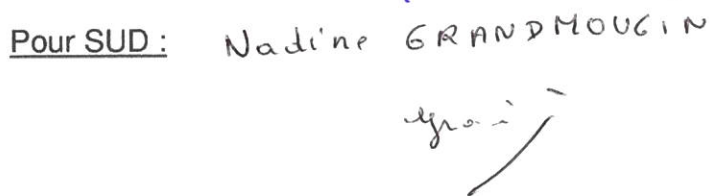 Pour SUD : Nadine GRANDMOUGIN